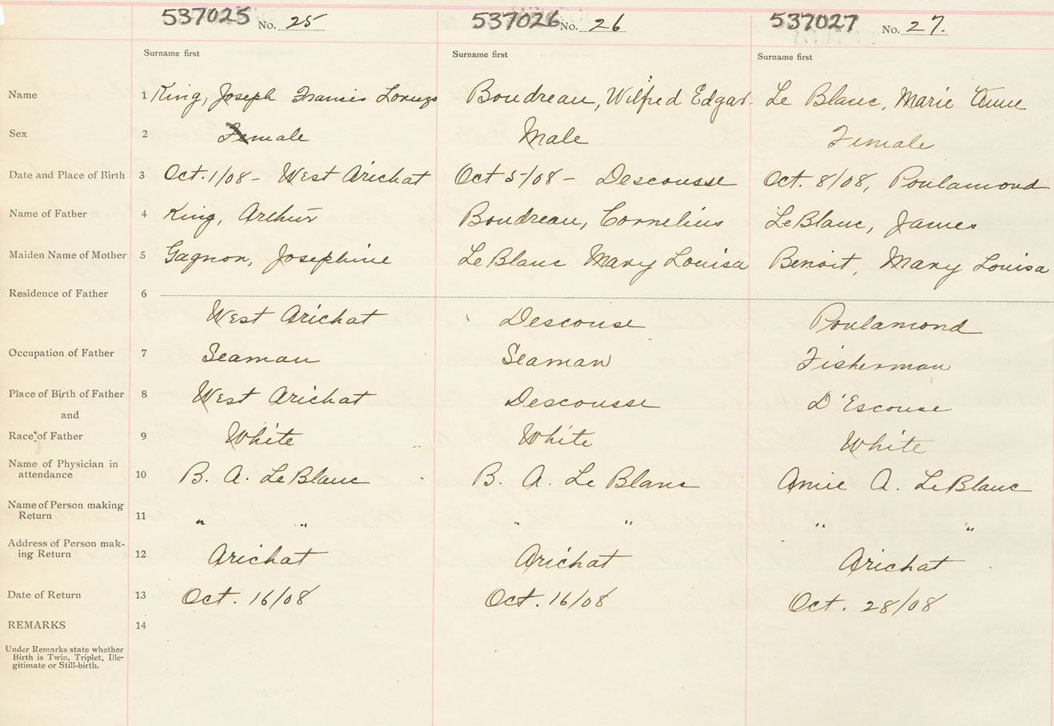 537025 No. 25 537026 No. 26 537027 No. 27.
Surname first Surname first Surname first
Name 1 King, Joseph Francis Lorenzo Boudreau, Wilfred Edgar. Le Blanc, Marie Anne
Sex 2 Female Male Female
Date and Place of Birth 3 Oct. 1/08 - West Arichat Oct 5/08 - Descousse Oct. 8/08, Poulamond
Name of Father 4 King, Arthur Boudreau, Cornelius LeBlanc, James
Maiden Name of Mother 5 Gagnon, Josephine LeBlanc Mary Louisa Benoit, Mary Louisa
Residence of Father 6
West Arichat Descouse Poulamond
Occupation of Father 7 Seaman Seaman Fisherman
Place of Birth of Father 8 West Arichat Descousse D'Escouse
and
Race of Father 9 White White White
Name of Physician in
attendance 10 B. A. LeBlanc B. A. Le Blanc Amie A. LeBlanc
Name of Person making
Return 11 " " " " " "
Address of Person mak-
ing Return 12 Arichat Arichat Arichat
Date of Return 13 Oct. 16/08 Oct. 16/08 Oct. 28/08
REMARKS 14
Under Remarks state whether
Birth is Twin, Triplet, Ille-
gitimate or Still-birth.